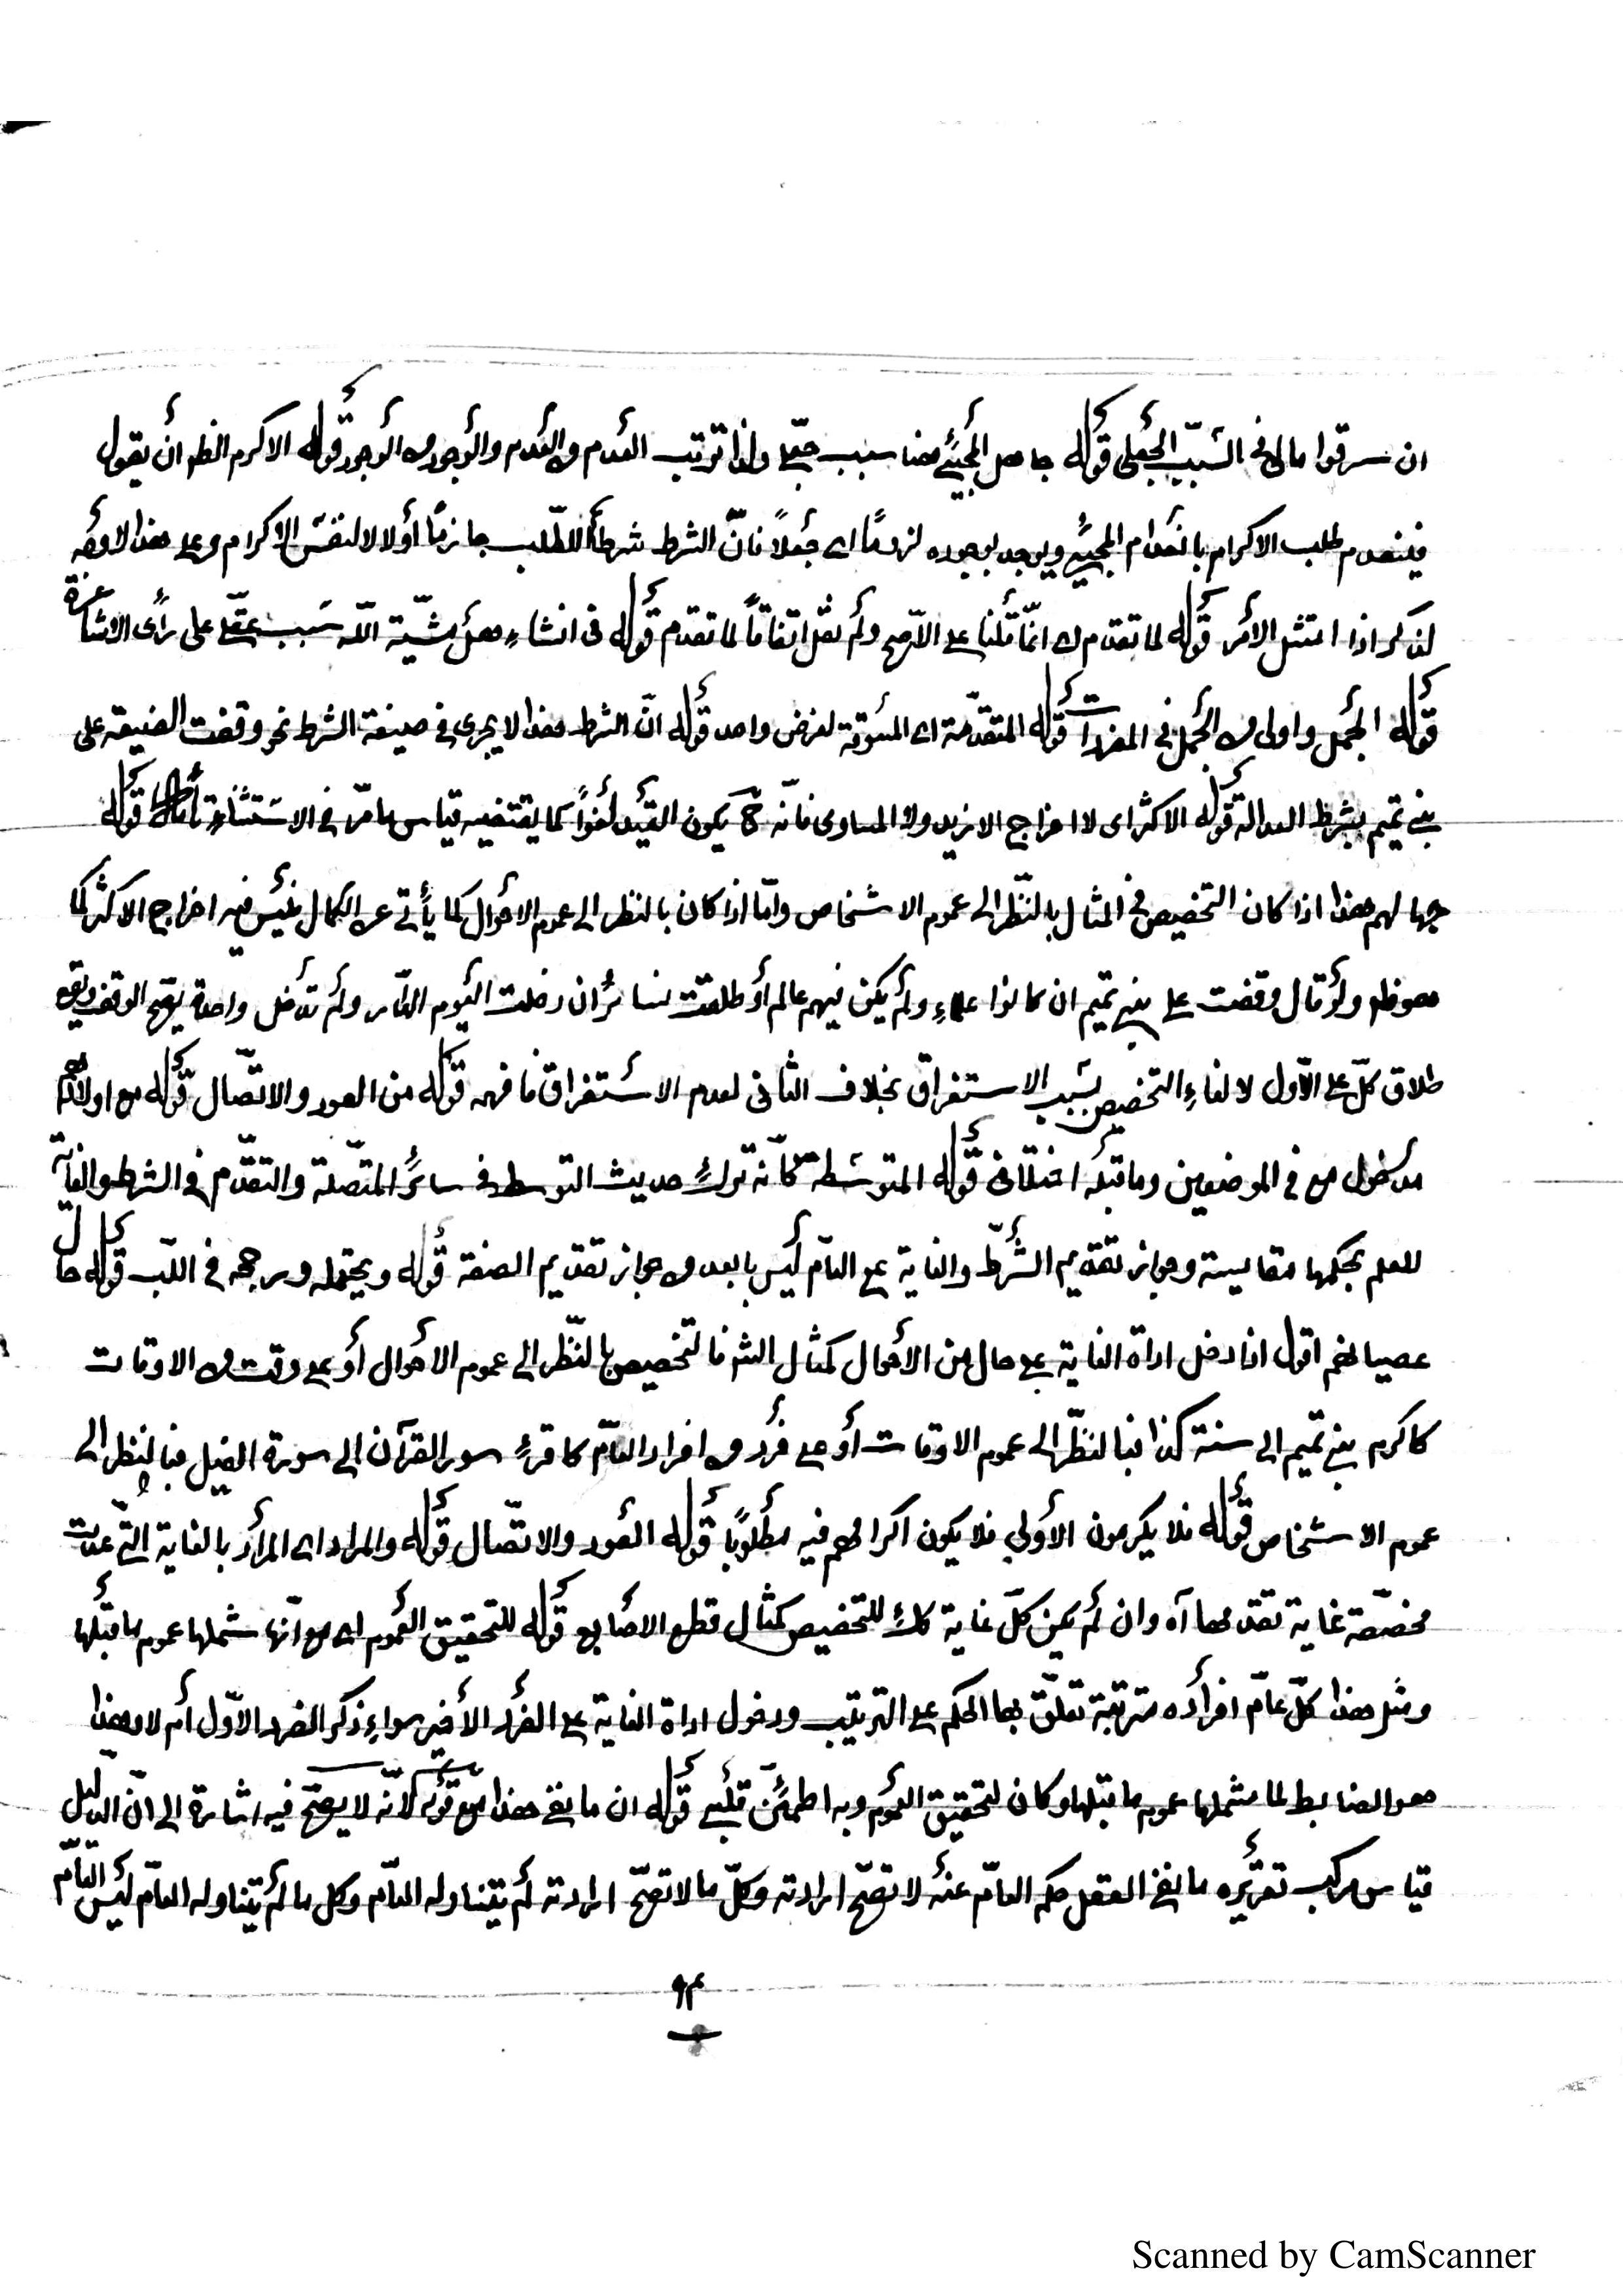 ان سرقوا مالى فى السّبب الجعلى قوله حاصل المجيئ هنا سبب جعلى ولذا ترتب العدم من العدم والوجود من الوجود قوله الاكرم الظ ان يقول
فينعدم طلب الاكرام بانعدام المجيئ ويوجد بوجوده لزومًا اى جعلاً فانّ الشرط شرط للطّلب جازمًا أولا لالنفس الاكرام وعلى هذا لاوجه
لذكر اذا امتثل الأمر قوله لما تقدم اى انّما قلنا على الاصح ولم نقل اتفاقاً لما تقدم قوله فى انشاء هل مشيّة الله سبب عقلى على رأى الاشاعرة
قوله الجمل واولى من الجمل فى المفردات قوله المتقدّمة اى المسوقة لغرض واحد قوله انّ الشرط هذا لا يجرى فى صيغة الشرط نحو وقفت الضيعة على
بنى تميم بشرط العدالة قوله الاكثر اى لا اخراج الازيد ولا المساوى فانّه ح يكون القيد لغواً كما يقتضيه قياس مامرّ فى الاستثناء تأمل قوله
جهالهم هذا اذا كان التخصيص فى المثال بالنّظر الى عموم الاشخاص وامّا اذا كان بالنظر الى عموم الاحوال كما يأتى عن الكمال فليس فيه اخراج الاكثر كما
هو ظ ولو قال وقفت على بنى تميم ان كانوا علماء ولم يكن فيهم عالم أو طلقت نسائى ان دخلت اليوم الدّار ولم تدخل واحدة يصح الوقف ويقع
طلاق كلّ على الاوّل لالغاء التخصيص بسبب الاستغراق بخلاف الثانى لعدم الاستغراق فافهم قوله من العود والاتّصال قوله مع اولادهم
مدخول مع فى الموضعين وماقبله اختلفا فى قوله المتوسّطة كانّه ترك حديث التوسط فى سائر المتّصلة والتقدّم فى الشرط والغاية
للعلم بحكمها مقايسة وجواز تقديم الشّرط والغاية على العامّ ليس بابعد من جواز تقديم الصفة قوله ويحتمله ورجحه فى اللبّ قوله حال
عصيانهم اقول اذا دخل اداة الغاية على حال من الأحوال كمثال الش فالتخصيص بالنّظر الى عموم الأحوال أو على وقت من الاوقات
كاكرم بنى تميم الى سنة كذا فبالنظر الى عموم الاوقات أو على فرد من افراد العامّ كاقرء سور القرآن الى سورة الفيل فبالنظر الى
عموم الاشخاص قوله فلا يكرمون الأولى فلا يكون اكرامهم فيه مطلوبًا قوله العود والاتّصال قوله والمراد اى المراد بالغاية الّتى عدّت
مخصّصة غاية تقدمها آه وان لم يكن كلّ غاية كك للتخصيص كمثال قطع الاصابع قوله للتحقيق العموم اى مع انّها شملها عموم ماقبلها
ومثل هذا كلّ عامّ افراده مترتبة تعلّق بها الحكم على الترتيب ودخول اداة الغاية على الفرد الأخير سواء ذكر الفرد الاوّل أم لا وهذا
هو الضابط لما شملها عموم ماقبلها وكان لتحقيق العموم وبه اطمئنّ قلبى قوله ان ما نفى هذا مع قوله لانّه لا يصحّ فيه اشارة الى انّ الدليل
قياس مركب تقريره ما نفى العقل حكم العامّ عنه لا تصحّ ارادته وكلّ ما لا تصحّ ارادته لم يتناوله العامّ وكل ما لم يتناوله العامّ ليس العامّ
٩٤
Scanned by CamScanner